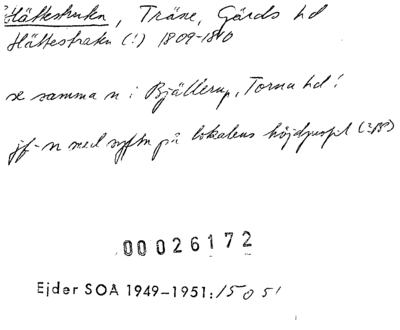 Hättestruka, Träne, Gärds hd
Hättestraku (!) 1809-1810
se samma n i Bjällerup, Torna hd!
jf-n med syftn på lokalens höjdprofil
00026172
Ejder SOA 1949-1951: 15051